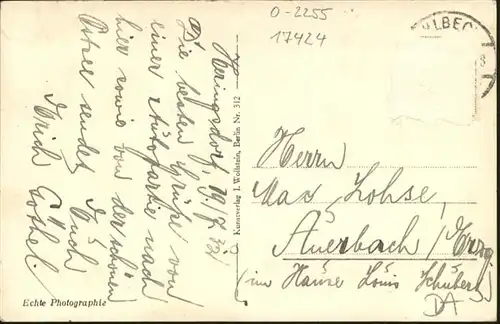 O-2255
17424
HLBEC
8
Heringsdorf, 19.7.32
Die besten Grüße von
einer Autopartie nach
hier sowie von der schönen
Ostsee sendet Euch
Erich Göthel.
Kunstverlag J. Wollstein, Berlin Nr. 312
Herrn
Max Lohse,
Auerbach / Erzg.
(im Hause Louis Schubert)
DA
Echte Photographie